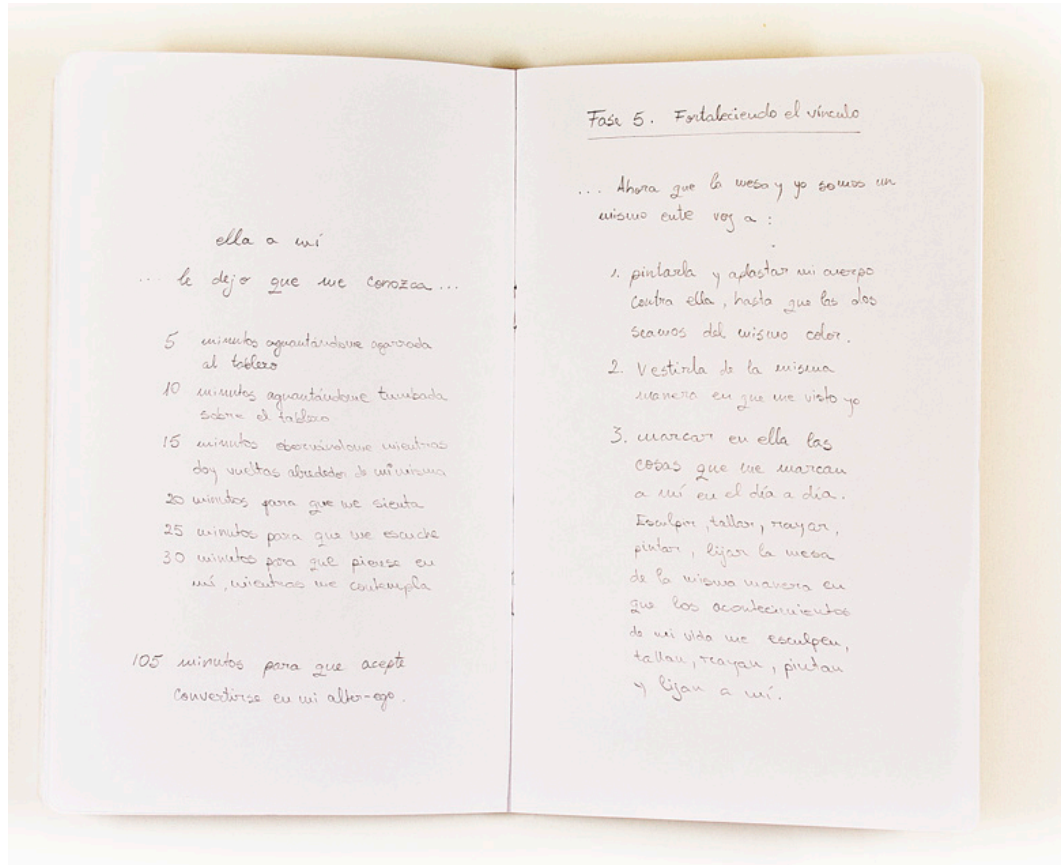 ella a mí
... le dejo que me conozca...
5 minutos aguantándome agarrada
al tablero
10 minutos aguantándome tumbada
sobre el tablero
15 minutos observándome mientras
doy vueltas alrededor de mi misma
20 minutos para que me sienta
25 minutos para que me escuche
30 minutos para que piense en
mí, mientras me contempla
105 minutos para que acepte
convertirse en mi alter-ego.
Fase 5. Fortaleciendo el vínculo
... Ahora que la mesa y yo somos un
mismo ente voy a :
1. pintarla y aplastar mi cuerpo
contra ella, hasta que las dos
seamos del mismo color.
2. Vestirla de la misma
manera en que me visto yo
3. marcar en ella las
cosas que me marcan
a mí en el día a día.
Esculpir, tallar, rayar,
pintar, lijar la mesa
de la misma manera en
que los acontecimientos
de mi vida me esculpen,
tallan, rayan, pintan
y lijan a mí.